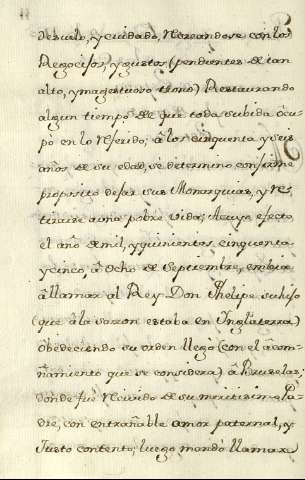 desvelo, y cuidado, Recreandose con los
Regocijos, y gustos (pendientes de tan
alto, y magestuoso trono) Restaurando
algun tiempo de que toda subida ócu-
pó en lo Referido; â los cinquenta y seis
años de su edad, se determino con firme
proposito dejar sus Monarquias, y Re-
tirarse auna pobre vida; Acuyo efecto
el año demil, y quinientos cinquenta
y cinco, â Ocho de Septiembre, embia
âllamar al Rey Don Phelipe su hijo
(que âla sazon estaba en Inglaterra)
Obedeciendo su orden llegó (con el acom-
pañamiento que se considera) â Bruselas;
donde fué Recivido de su mui Pa-
dre, con entrañable amor paternal, y
Justo contento; luego mandó llamar